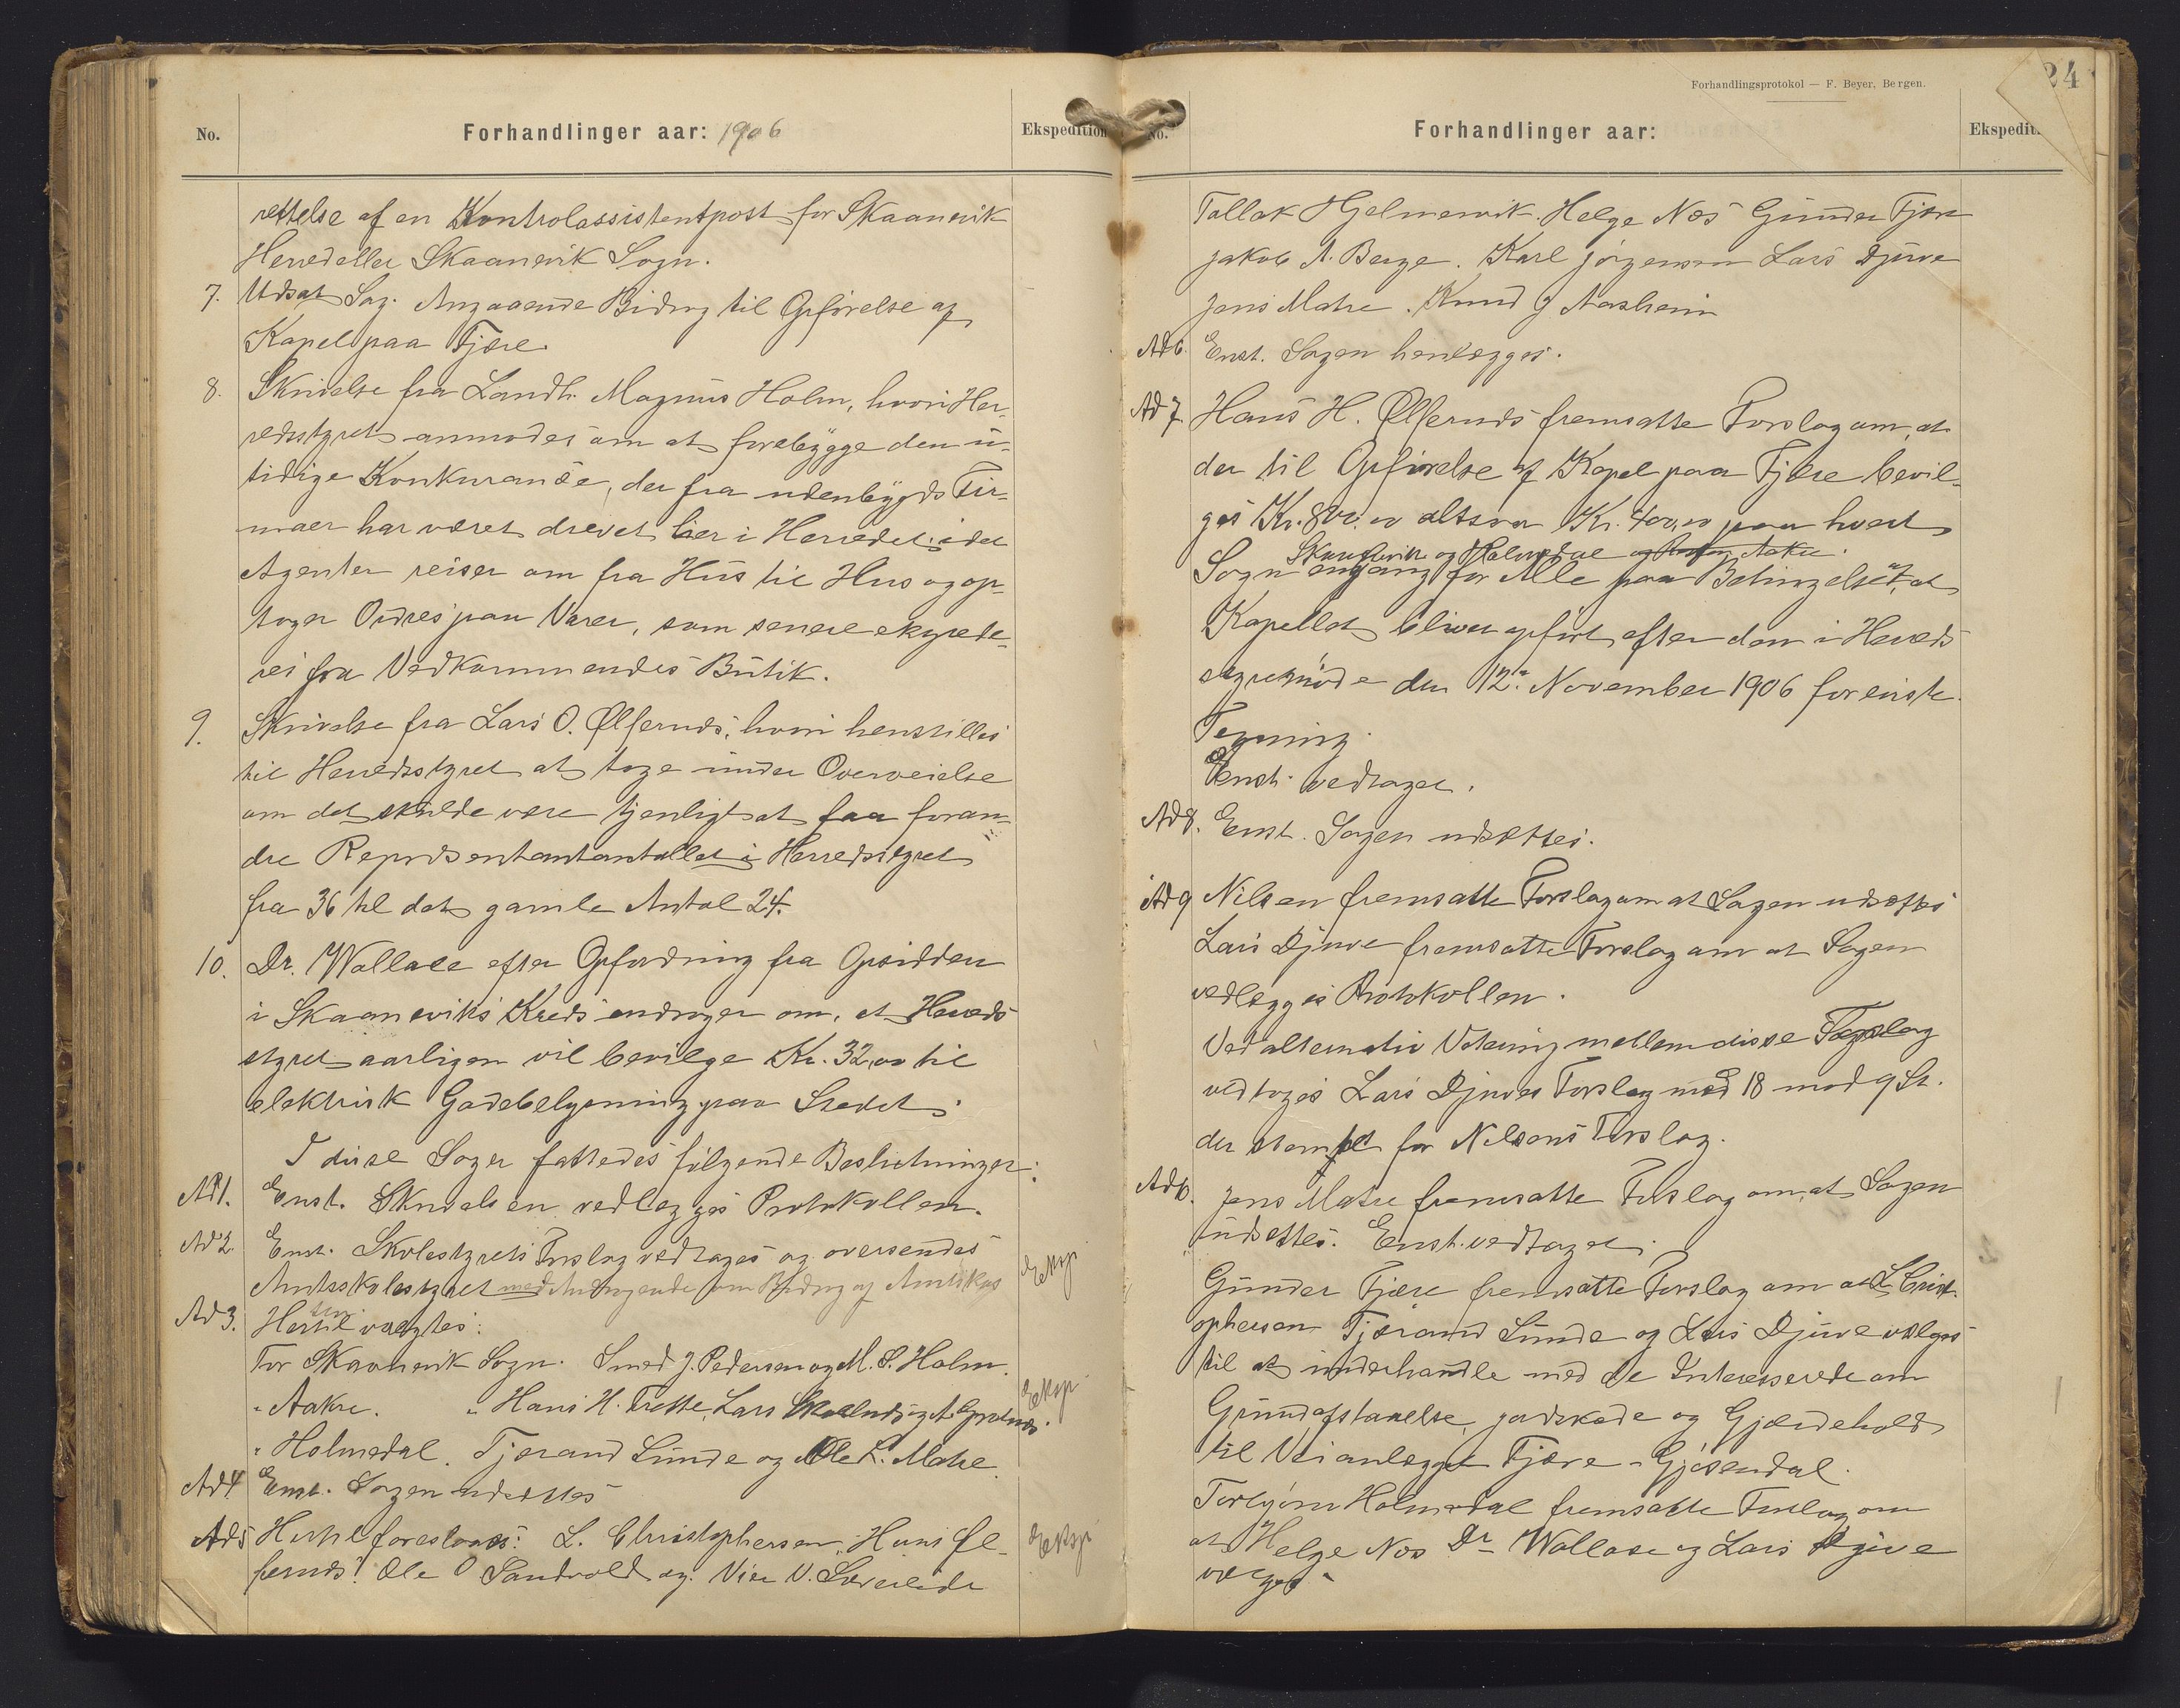 No.
Forhandlinger aar: 1906
Ekspedition
rettelse af en Kontrolassistentpost for Skaanevik
Herred eller Skaanevik Sogn.
7. Udsat Sag. Angaaende Bidrag til Opførelse af
Kapel paa Fjære.
8. Skrivelse fra Landh. Magnus Holm, hvori Her-
redsstyret anmodes om at forebygge den u-
tidige Konkuranse, der fra udenbygds Fir-
maer har været drevet her i Herredet idet
Agenter reiser om fra Hus til Hus og op-
tager Ordres paa Varer, som senere ekspede-
res fra Vedkommendes Butik.
9. Skrivelse fra Lars O. Ølfernæs, hvori henstilles
til Herredsstyret at tage under Overveielse
om det skulde være tjenligt at faa foran-
dre Repræsentantantallet i Herredsstyret
fra 36 til det gamle Antal 24.
10. Dr. Wallace efter Opfordring fra Opsidden
i Skaaneviks Kreds andrager om, at Herreds
styret aarligen vil bevilge Kr. 32,00 til
elektrisk Gadebelysning paa Stedet.
I disse Sager fattedes følgende Beslutninger:
Ad 1. Enst. Skrivelsen vedlægges Protokollen.
Ad 2. Enst. Skolestyrets Forslag vedtages og oversendes
Amtsskolestyret med Andragende om Bidrag af Amtskas
Eksp.
Ad 3. Hertil valgtes:
For Skaanevik Sogn. Smed J. Pedersen og M. S. Holm.
" Aakre. " Hans H. Trætte, Lars
Eksp.
" Holmedal. Tjerand Sunde og Ole L. Matre
Ad 4. Enst. Sagen udsættes
Ad 5 Hertil foresloges: L. Christophersen, Hans Øl-
fernæs. Ole O Sandvold og Vier V. Sævereide
Eksp.
Forhandlingsprotokol — F. Beyer, Bergen.
24
No.
Forhandlinger aar:
Ekspedit
Tallak Hjelmervik. Helge Næs Gunder Fjære
Jakob A. Berge. Karl Jørgensen Lars Djuve
Jens Matre. Knud J Aasheim
Ad 6. Enst. Sagen henlægges.
Ad 7. Hans H. Ølfernæs fremsatte Forslag om, at
der til Opførelse af Kapel paa Fjære bevil-
ges Kr. 800,00 altsaa Kr. 400,00 paa hvert
Skaanevik og Holmedal og Aakre.
Sogn engang for Alle paa Betingelse af, at
Kapellet bliver opført efter den i Herreds
styremøde den 12te November 1906 foreviste
Tegning.
Enst. vedtaget.
Ad 8. Enst. Sagen udsættes.
Ad 9 Nilsen fremsatte Forslag om at Sagen udsættes
Lars Djuve fremsatte Forslag om at Sagen
vedlægges Protokollen.
Ved alternativ Votering mellem disse Forslag
vedtoges Lars Djuves Forslag med 18 mod 9 St.
der stemte for Nilsens Forslag.
Ad 10. Jens Matre fremsatte Forslag om, at Sagen
udsettes. Enst. vedtaget.
Gunder Fjære fremsatte Forslag om at L. Crist-
ophersen Tjerand Sunde og Lars Djuve vælges
til at underhandle med de Interesserede om
Grundafstaaelse, Jordskade og Gjærdehold
til Veianlægget Fjære - Gjøsendal.
Torbjørn Holmedal fremsatte Forslag om
at Helge Næs Dr. Wallace og Lars Djuve
vælges